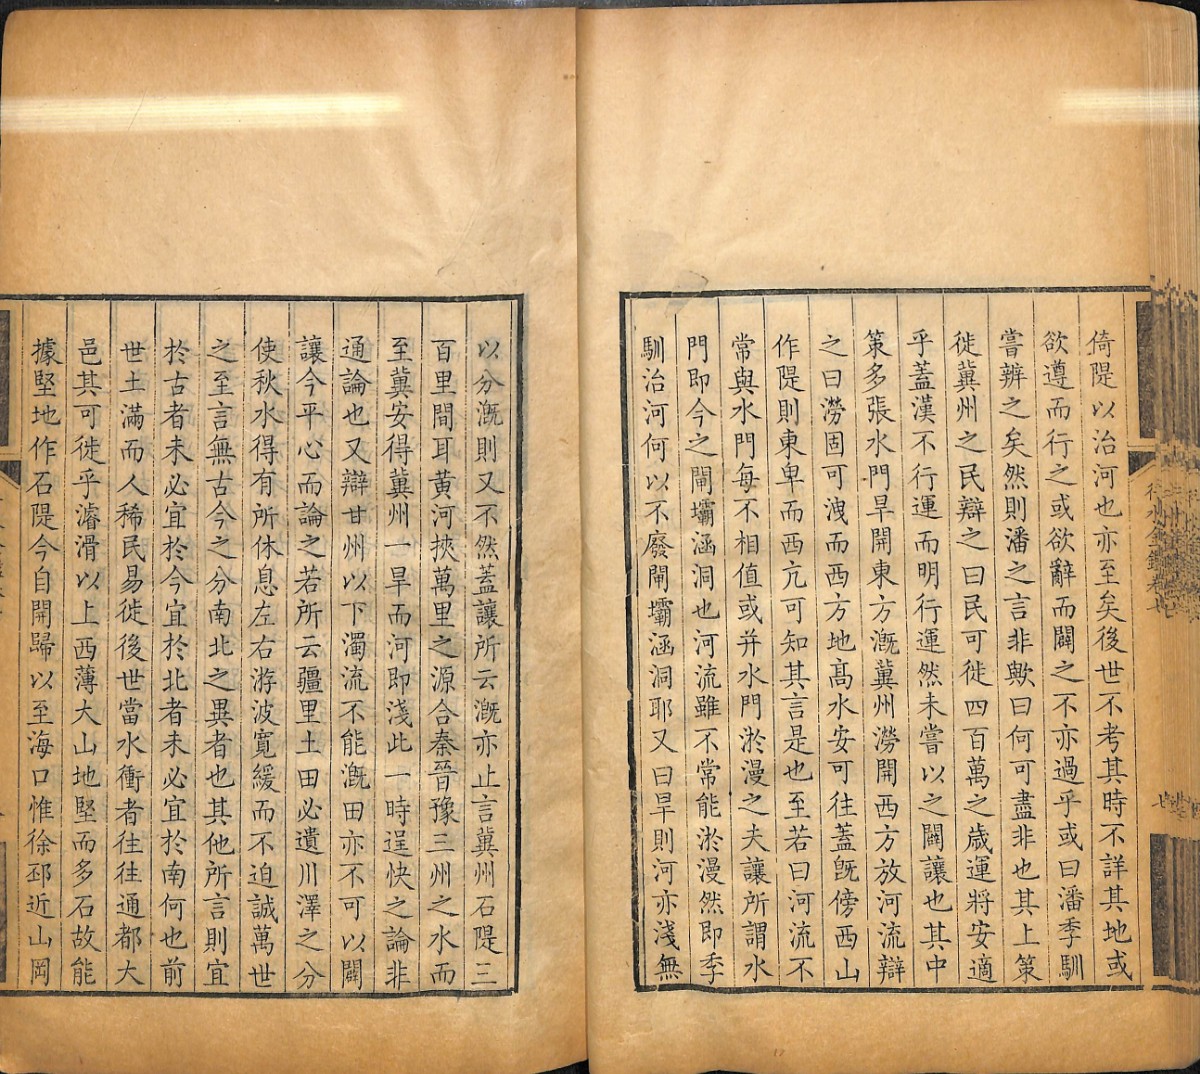 倚隄以治河也亦至矣後世不考其時不詳其地或
欲遵而行之或欲辭而闢之不亦過乎或曰潘季馴
嘗辨之矣然則潘之言非歟曰何可盡非也其上策
徙冀州之民辯之曰民可徙四百萬之歲運將安適
乎蓋漢不行運而明行運然未嘗以之闢讓也其中
策多張水門旱開東方漑冀州澇開西方放河流辯
之曰澇固可洩而西方地高水安可往蓋旣傍西山
作隄則東卑而西亢可知其言是也至若曰河流不
常與水門每不相值或并水門淤漫之夫讓所謂水
門即今之閘壩涵洞也河流雖不常能淤漫然即季
馴治河何以不廢閘壩涵洞耶又曰旱則河亦淺無
以分漑則又不然蓋讓所云漑亦止言冀州石隄三
百里間耳黃河挾萬里之源合秦晉豫三州之水而
至冀安得冀州一旱而河即淺此一時逞快之論非
通論也又辯甘州以下濁流不能漑田亦不可以闢
讓今平心而論之若所云疆里土田必遺川澤之分
使秋水得有所休息左右游波寬緩而不迫誠萬世
之至言無古今之分南北之異者也其他所言則宜
於古者未必宜於今宜於北者未必宜於南何也前
世土滿而人稀民易徙後世當水衝者往往通都大
邑其可徙乎濬滑以上西薄大山地堅而多石故能
據堅地作石隄今自開歸以至海口惟徐邳近山岡